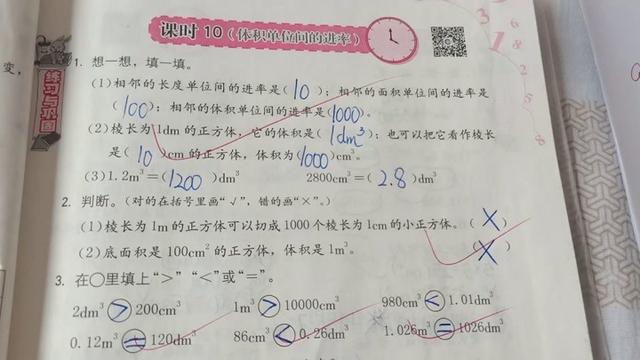 课时10（体积单位间的进率）
变，
练习与巩固
1. 想一想，填一填。
(1)相邻的长度单位间的进率是( 10 )；相邻的面积单位间的进率是
(100)；相邻的体积单位间的进率是(1000)。
(2)棱长为1dm的正方体，它的体积是( 1dm³ )；也可以把它看作棱长
是( 10 )cm的正方体，体积为(1000)cm³。
(3)1.2m³=(1200)dm³ 2800cm³=( 2.8 )dm³
2. 判断。(对的在括号里画“√”，错的画“×”。)
(1)棱长为1m的正方体可以切成1000个棱长为1cm的小正方体。( × )
(2)底面积是100cm²的正方体，体积是1m³。 ( × )
3. 在○里填上“>”“<”或“=”。
2dm³ > 200cm³ 1m³ > 10000cm³ 980cm³ < 1.01dm³
0.12m³ = 120dm³ 86cm³ < 0.26dm³ 1.026m³ = 1026dm³